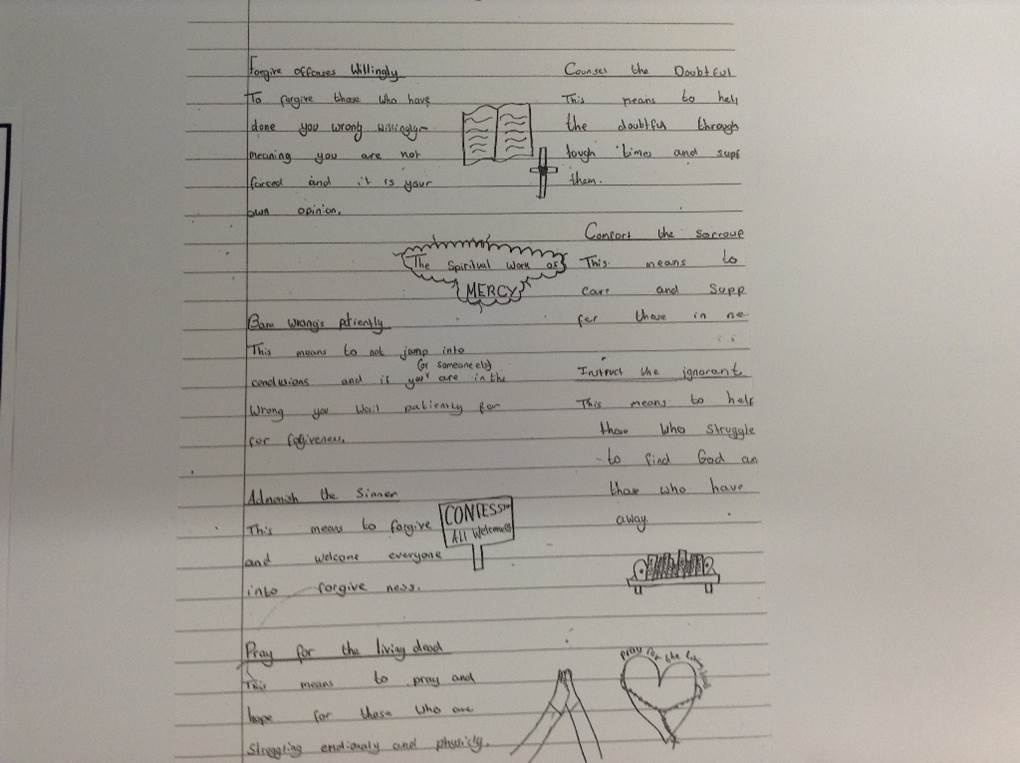 Forgive offenses Willingly
To forgive those who have
done you wrong willingly-
meaning you are not
forced and it is your
own opinion.
Counsel the Doubtful
This means to help
the doubtful through
tough times and supp
them.
The Spiritual Work of
MERCY
Comfort the sorrowf
This means to
care and supp
for those in ne
Bare wrong's patiently
This means to not jump into
(or someone els)
conclusions and if your are in the
Wrong you wait patiently for
for forgiveness.
Instruct the ignorant
This means to help
those who struggle
to find God an
those who have
away
Admonish the Sinner
This means to forgive
and welcome everyone
into forgive ness.
CONFESS
All Welcome
Pray for the living dead
This means to pray and
hope for those who are
struggling and
Pray for the living dead